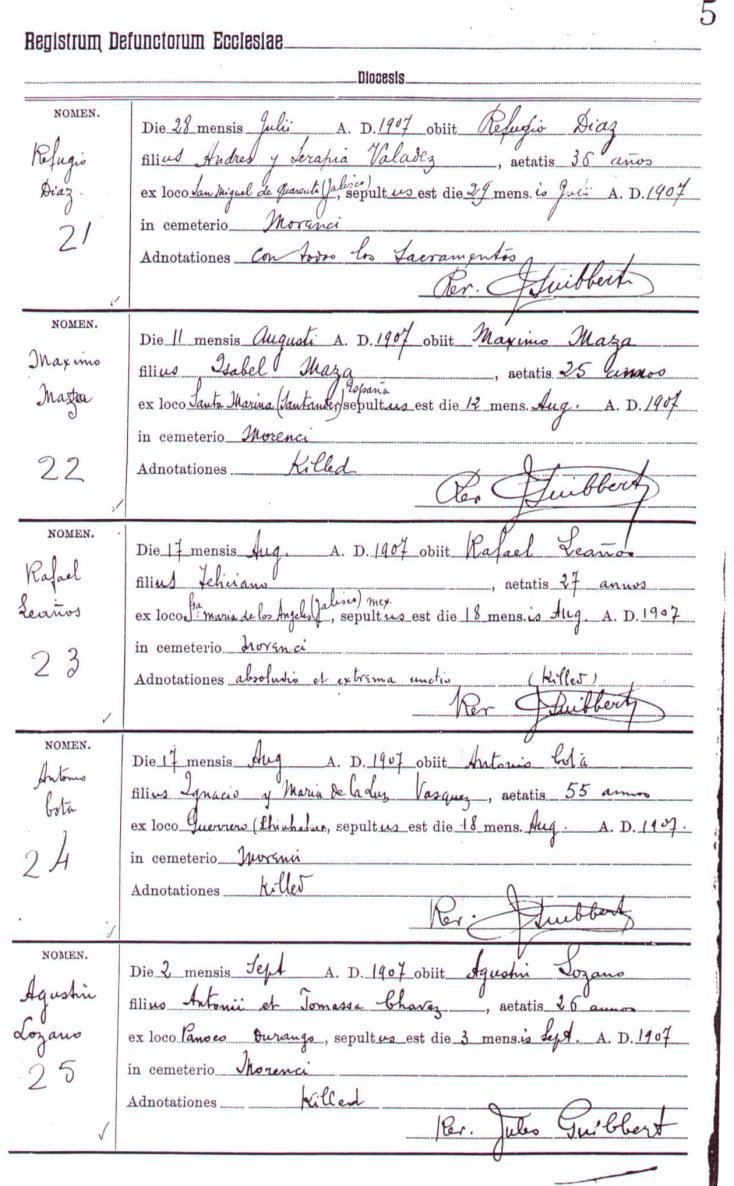 5
Registrum Defunctorum Ecclesiae
Diocesis
NOMEN.
Refugio
Diaz.
21
Die 28 mensis Julii A. D. 1907 obiit Refugio Diaz
filius Andres y Serapia Valadez, aetatis 36 años
ex loco San Miguel de (Jalisco), sepultus est die 29 mens.is Julii A. D. 1907
in cemeterio Morenci
Adnotationes con todos los Sacramentos
Rev. J Guibbert
NOMEN.
Maximo
Maza
22
Die 11 mensis Augusti A. D. 1907 obiit Maximo Maza
filius Isabel Maza, aetatis 25 annos
España
ex loco Santa Marina (Santander) sepultus est die 12 mens. Aug. A. D. 1907
in cemeterio Morenci
Adnotationes Killed
Rev J Guibbert
NOMEN.
Rafael
Leaños
23
Die 17 mensis Aug. A. D. 1907 obiit Rafael Leaños
filius Feliciano, aetatis 27 annos
ex loco Sta. maria de los Angeles (Jalisco) mex, sepultus est die 18 mens.is Aug. A. D. 1907
in cemeterio Morenci
Adnotationes absolutio et extrema unctio (Killed)
Rev J Guibbert
NOMEN.
Antonio
Cota
24
Die 17 mensis Aug A. D. 1907 obiit Antonio Cota
filius Ignacio y Maria de la Luz Vasquez, aetatis 55 annos
ex loco Guerrero (Chihuahua, sepultus est die 18 mens. Aug. A. D. 1907.
in cemeterio Morenci
Adnotationes Killed
Rev. J Guibbert
NOMEN.
Agustin
Lozano
25
Die 2 mensis Sept A. D. 1907 obiit Agustin Lozano
filius Antonii et Tomassa Chavez, aetatis 26 annos
ex loco Panoco Durango, sepultus est die 3 mens.is Sept. A. D. 1907
in cemeterio Morenci
Adnotationes Killed
Rev. Jules Guibbert